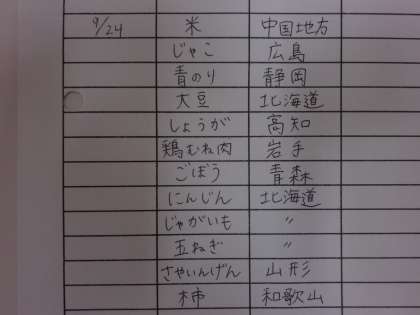 9/24 米 中国地方
じゃこ 広島
青のり 静岡
大豆 北海道
しょうが 高知
鶏むね肉 岩手
ごぼう 青森
にんじん 北海道
じゃがいも 〃
玉ねぎ 〃
さやいんげん 山形
柿 和歌山